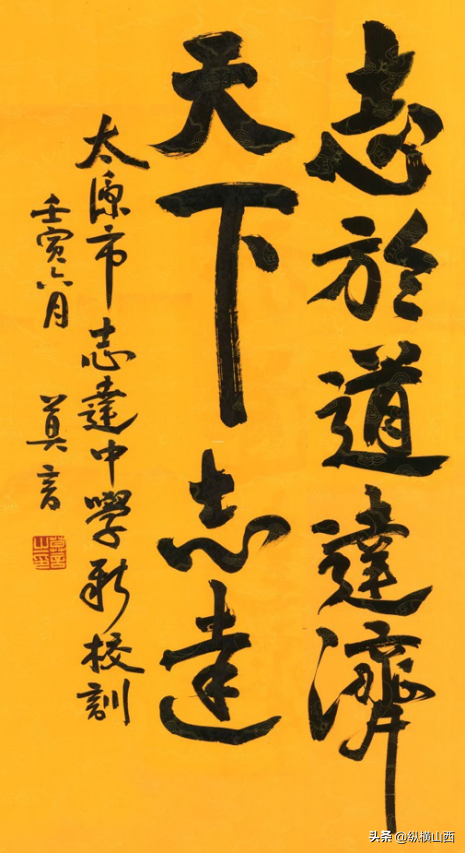 志於道達濟
天下志達
太原市志達中學新校訓
壬寅六月
莫言
头条 @纵横山西